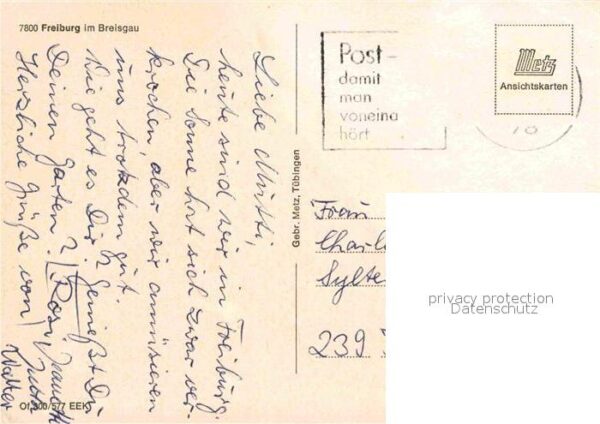 7800 Freiburg im Breisgau
Liebe Mutti,
heute sind wir in Freiburg.
Die Sonne hat sich zwar ver-
krochen, aber wir amüsieren
uns trotzdem gut.
Wie geht es Dir? Genießt Du
Deinen Garten?
Herzliche Grüße von
Rosi
Walter
Of 300/577 EEK
Gebr. Metz, Tübingen
Post-
damit
man
voneina
hört
Metz
Ansichtskarten
Frau
Charl
Sylte
239
privacy protection
Datenschutz